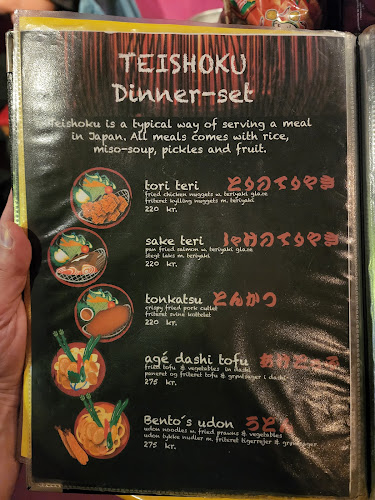 TEISHOKU
Dinner-set
Teishoku is a typical way of serving a meal
in Japan. All meals comes with rice,
miso-soup, pickles and fruit.
tori teri とりのてりやき
fried chicken nuggets w. teriyaki glaze
friteret kylling nuggets m. teriyaki
220 kr.
sake teri しゃけのてりやき
pan fried salmon w. teriyaki glaze
stegt laks m. teriyaki
220 kr.
tonkatsu とんかつ
crispy fried pork cutlet
friteret svine kotelet
220 kr.
agé dashi tofu あげどうふ
fried tofu & vegetables in dashi
paneret og friteret tofu & grøntsager i dashi
275 kr.
Bento´s udon うどん
udon noodles m. fried prawns & vegetables
udon tykke nudler m. friteret tigerrejer & grøntsager
275 kr.